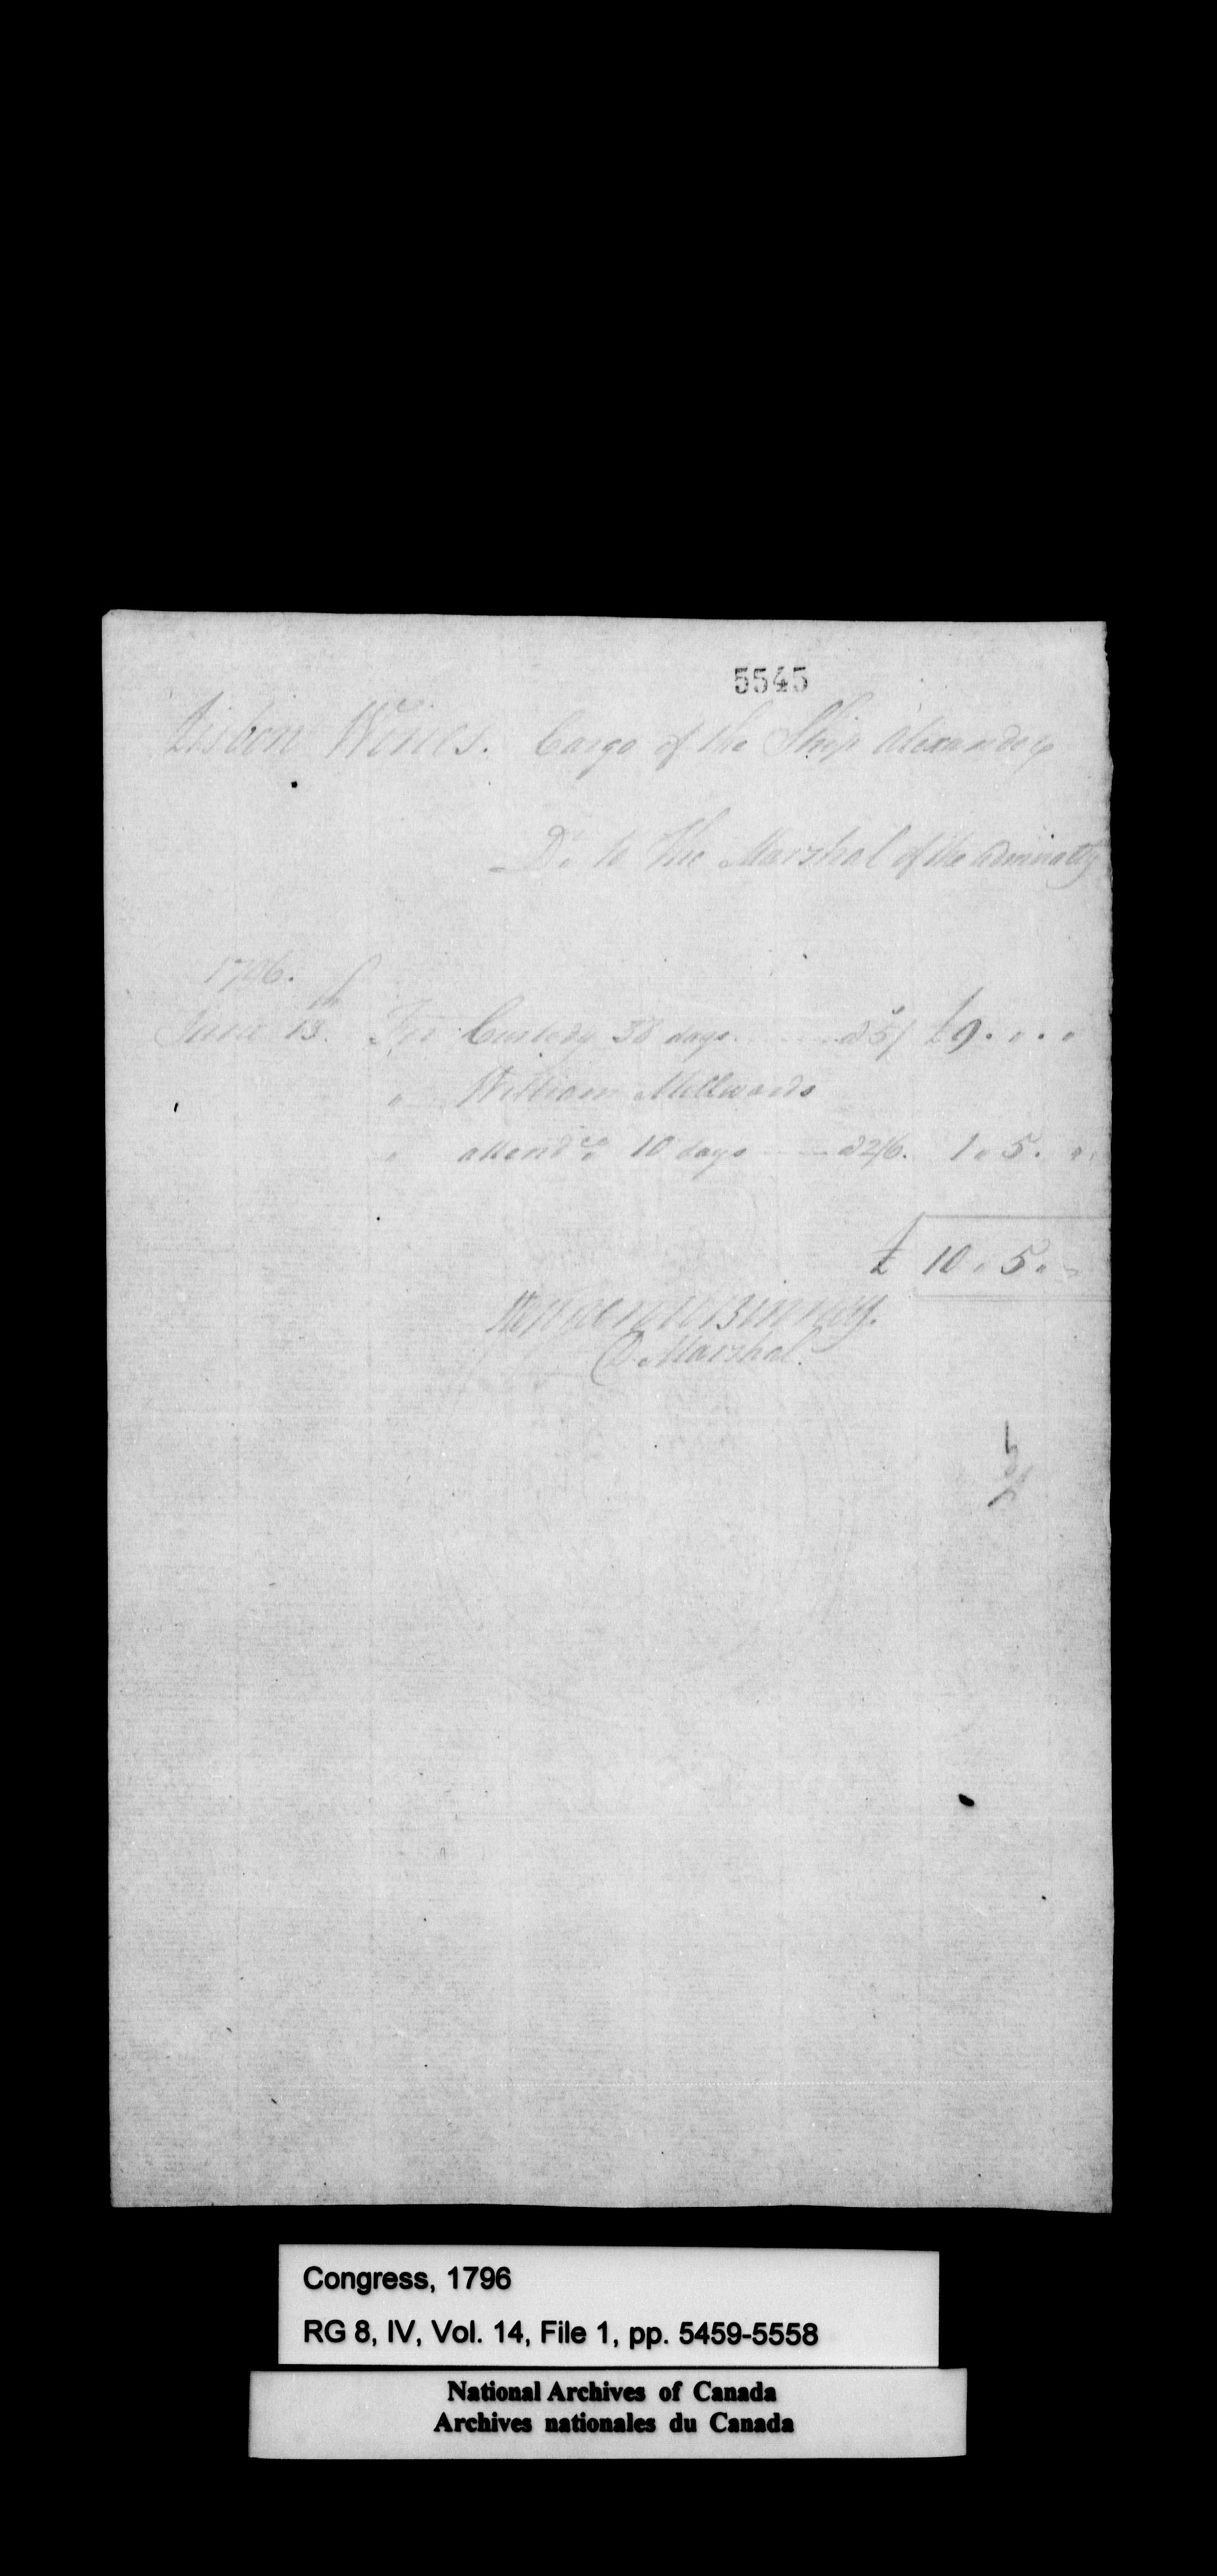 5545
Lisbon Wines. Cargo of the Ship Alexander
Dr. to the Marshal of the Admiralty
1796.
June 13th. For Custody 38 days @ 5/ £9 " . "
" William Millwards
" attendce 10 days @ 2/6. 1 " 5 . "
£ 10 " 5 "
Binney.
D. Marshal.
Congress, 1796
RG 8, IV, Vol. 14, File 1, pp. 5459-5558
National Archives of Canada
Archives nationales du Canada